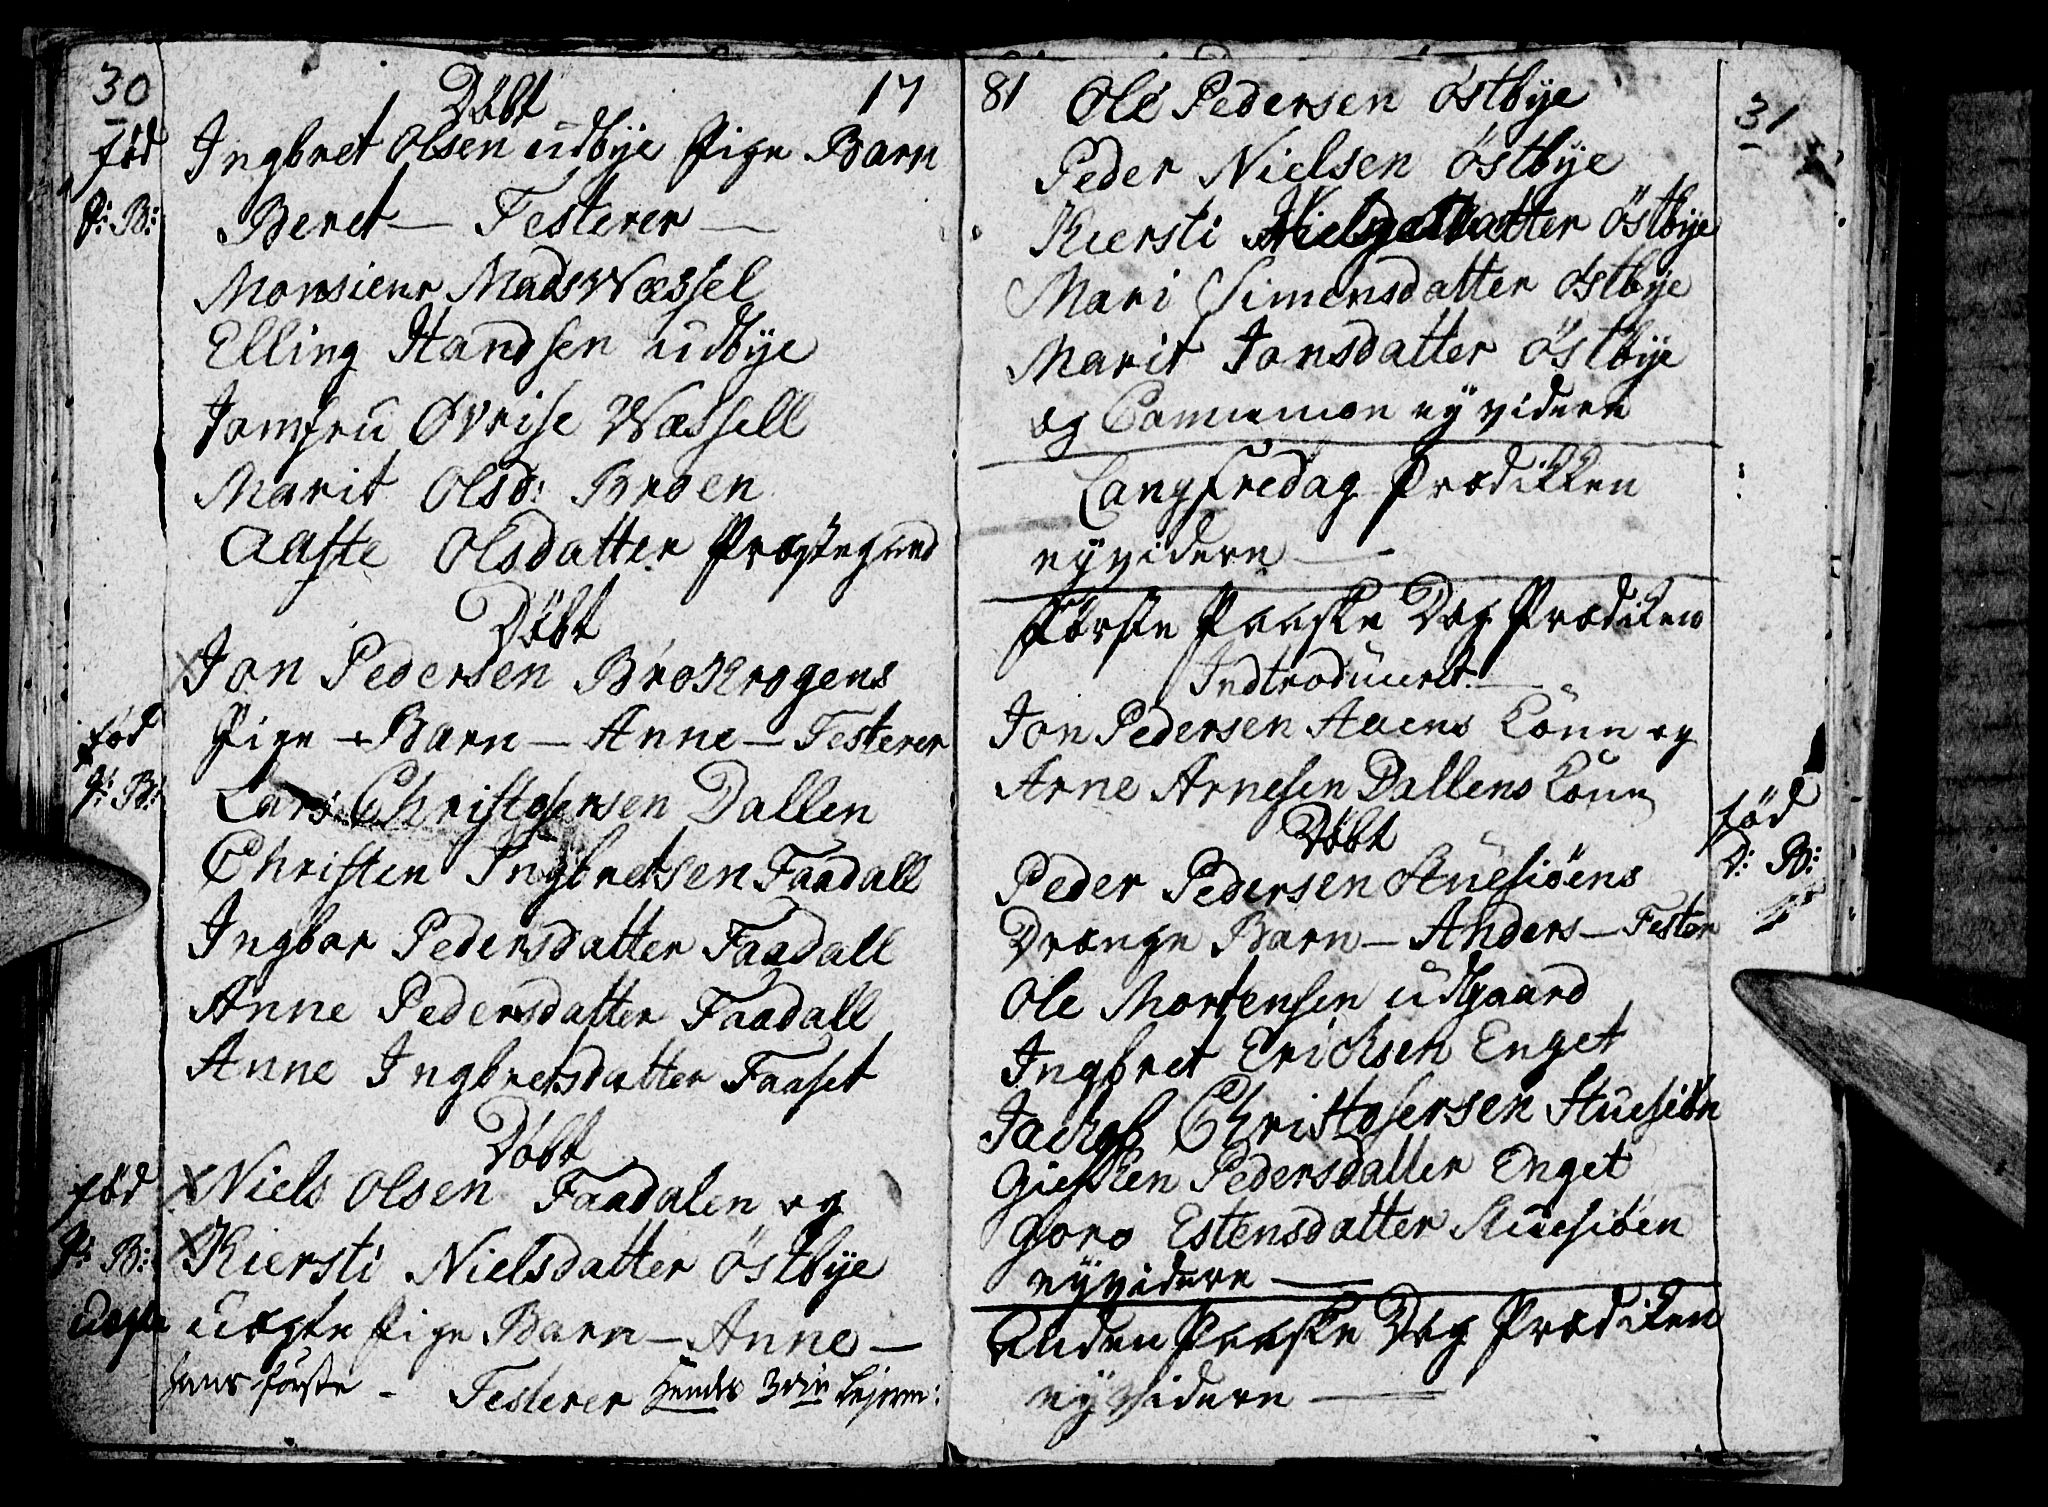 30
Döbt
17
föd
P: B:
Ingbret Olsen udbÿe Pige Barn
Beret — Testerer —
Monsieur Mads Wæssel
Elling Handsen udbÿe
Jomfru Øvrise Wæssell
Marit Olsd: Broen
Aaste Olsdatter Præstegaard
Döbt
Jon Pedersen BroKrogens
föd
P: B:
Pige — Barn — Anne — Testerer
Lars Christophersen Dallen
Christen Ingbretsen Faadall
Ingbor Pedersdatter Faadall
Anne Pedersdatter Faadall
Anne Ingbretsdatter Faaset
Döbt
föd
P: B:
uægte
Niels Olsen Faadalen og
Kiersti Nielsdatter Östbÿe
uægte Pige Barn — Anne —
hans förste - Testerer hendes
81
31
Ole Pedersen Östbÿe
Peder Nielsen Östbÿe
Kiersti Nielsdatter Östbÿe
Mari Simensdatter Östbÿe
Marit Jonsdatter Östbÿe
og Communion eÿ videre
Langfredag Prædikken
eÿ videre —
Förste Paaske Dag Prædiken
Indtroduceret —
Jon Pedersen Aaens Kone og
Arne Arnesen Dallens Kone
Döbt
föd
D: B:
Peder Pedersen Stuesiöens
Drænge Barn — Anders — Tester
Ole Mortensen udgaard
Ingbret Ericksen Enget
Jackob Christophersen Stuesiön
Giertken Pedersdatter Enget
Goro Estensdatter Stuesiöen
eÿ videre —
Anden Paaske Dag Prædiken
eÿ videre —